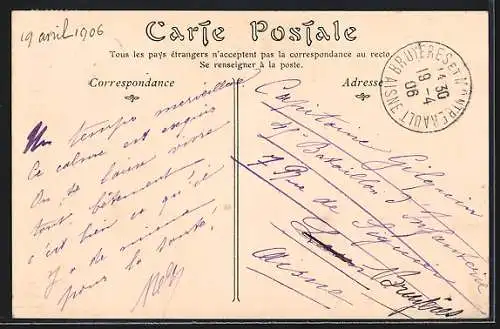 19 avril 1906
Carte Postale
Tous les pays étrangers n'acceptent pas la correspondance au recto.
Se renseigner à la poste.
Correspondance
Adresse
BRUYÈRES ET MONTBÉRAULT AISNE
14 30
19 - 4
06
Un temps merveilleux
Ce calme est exquis
On se laisse vivre
tout bêtement
c'est bien ce qu'il
y a de mieux
pour la santé!
Capitaine
4e Bataillon d'Infanterie
7 Rue de
Bruyères
Aisne